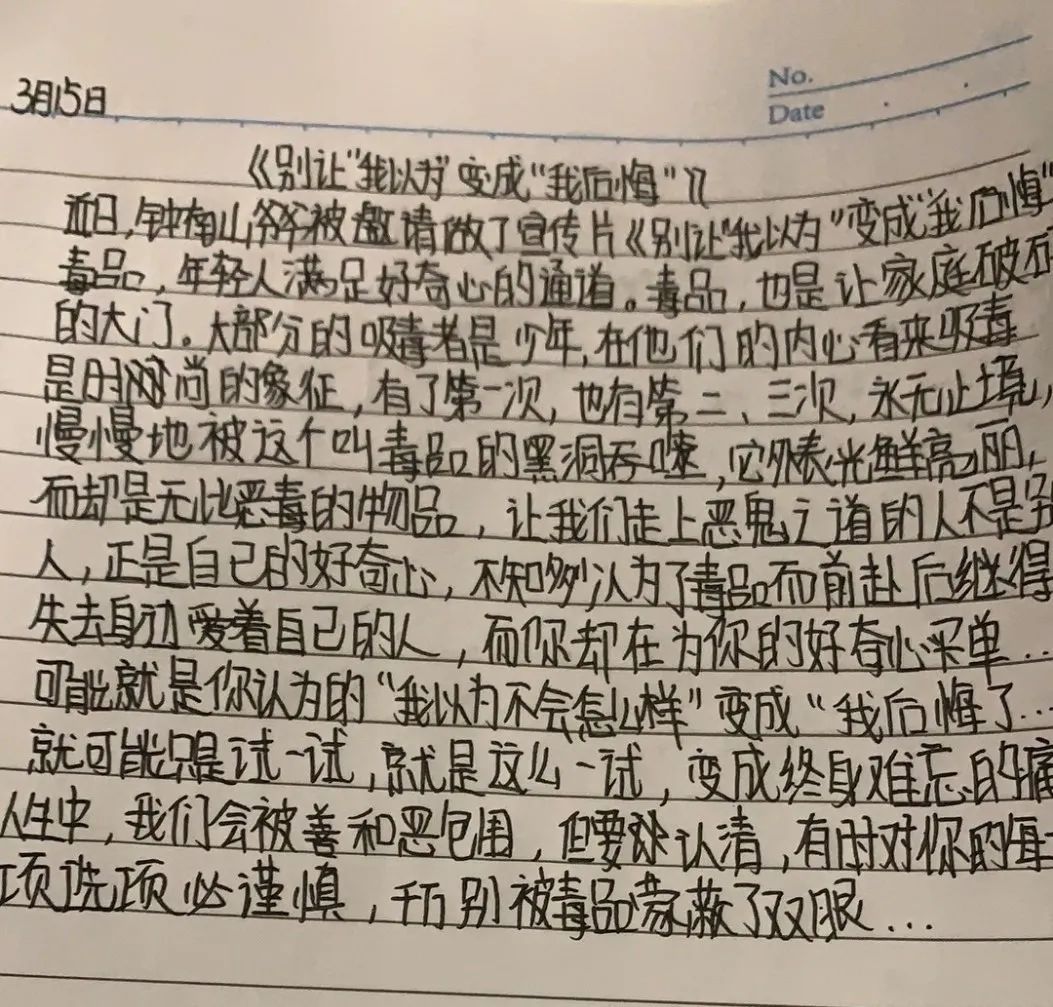 No.
3月15日
Date
《别让"我以为"变成"我后悔"》
近日,钟南山爷爷被邀请做了宣传片《别让"我以为"变成"我后悔"
毒品,年轻人满足好奇心的通道。毒品,也是让家庭破碎
的大门。大部分的吸毒者是少年,在他们的内心看来吸毒
是时尚的象征,有了第一次,也有第二、三次,永无止境,
慢慢地被这个叫毒品的黑洞吞噬,它外表光鲜亮丽,
而却是无比恶毒的物品,让我们走上恶鬼之道的人不是别
人,正是自己的好奇心,不知多少人为了毒品而前赴后继得
失去身边爱着自己的人,而你却在为你的好奇心买单...
可能就是你认为的"我以为不会怎么样"变成"我后悔了...
就可能只是试一试,就是这么一试,变成终身难忘的痛
人生中,我们会被善和恶包围,但要认清,有时对你的每一
项选项必谨慎,千万别被毒品蒙蔽了双眼...